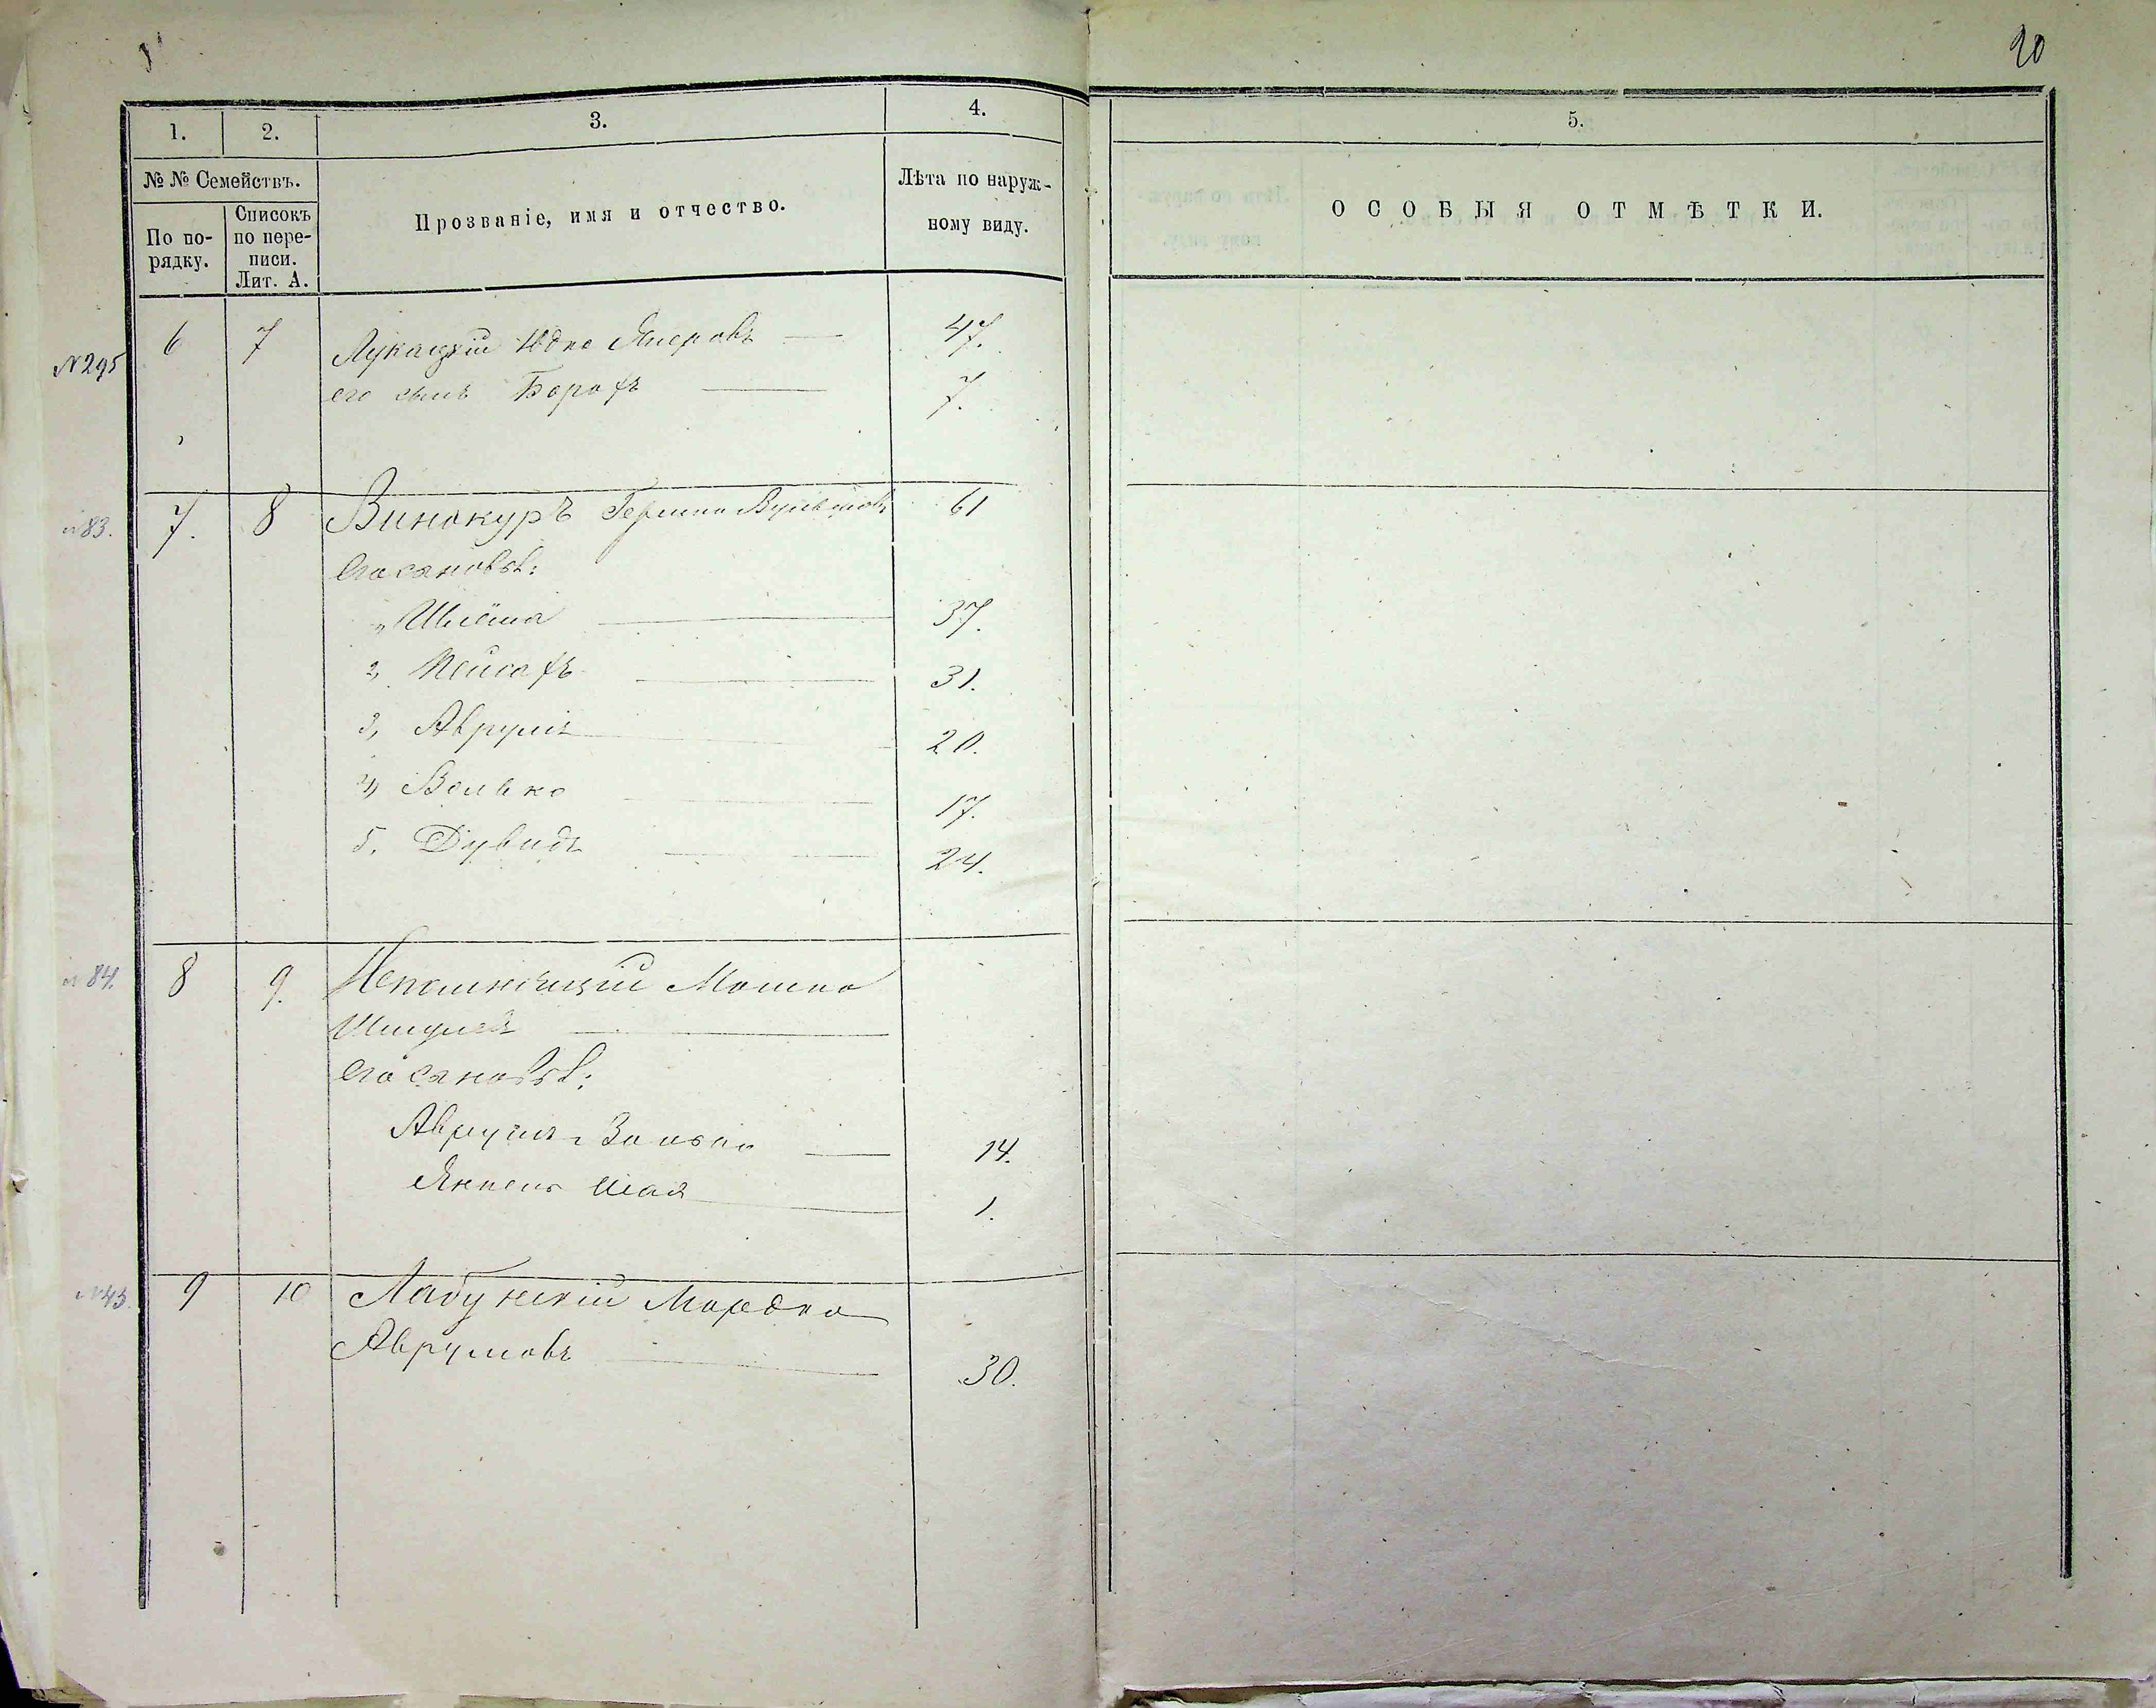 20
1. 2. 3. 4. 5.
№ № Семействъ.
По по-рядку.
Списокъ по пере-писи. Лит. А.
Прозваніе, имя и отчество.
Лѣта по наруж-ному виду.
ОСОБЫЯ ОТМѢТКИ.
№295 6 7 Лукацкій Юдко 47.
его сынъ Борохъ 7.
№83. 7. 8 Винокуръ Гершко 61
Его сыновья:
Шлёма 37.
2, Пейсахъ 31.
3, Аврумъ 20.
4, Волько 17.
5, Дувидъ 24.
№84. 8 9. Непомнящій Мошко
Его сыновья:
Аврумъ 14.
Янкель Шая 1.
№43. 9 10 Лабунскій Мордко
Аврумовъ 30.